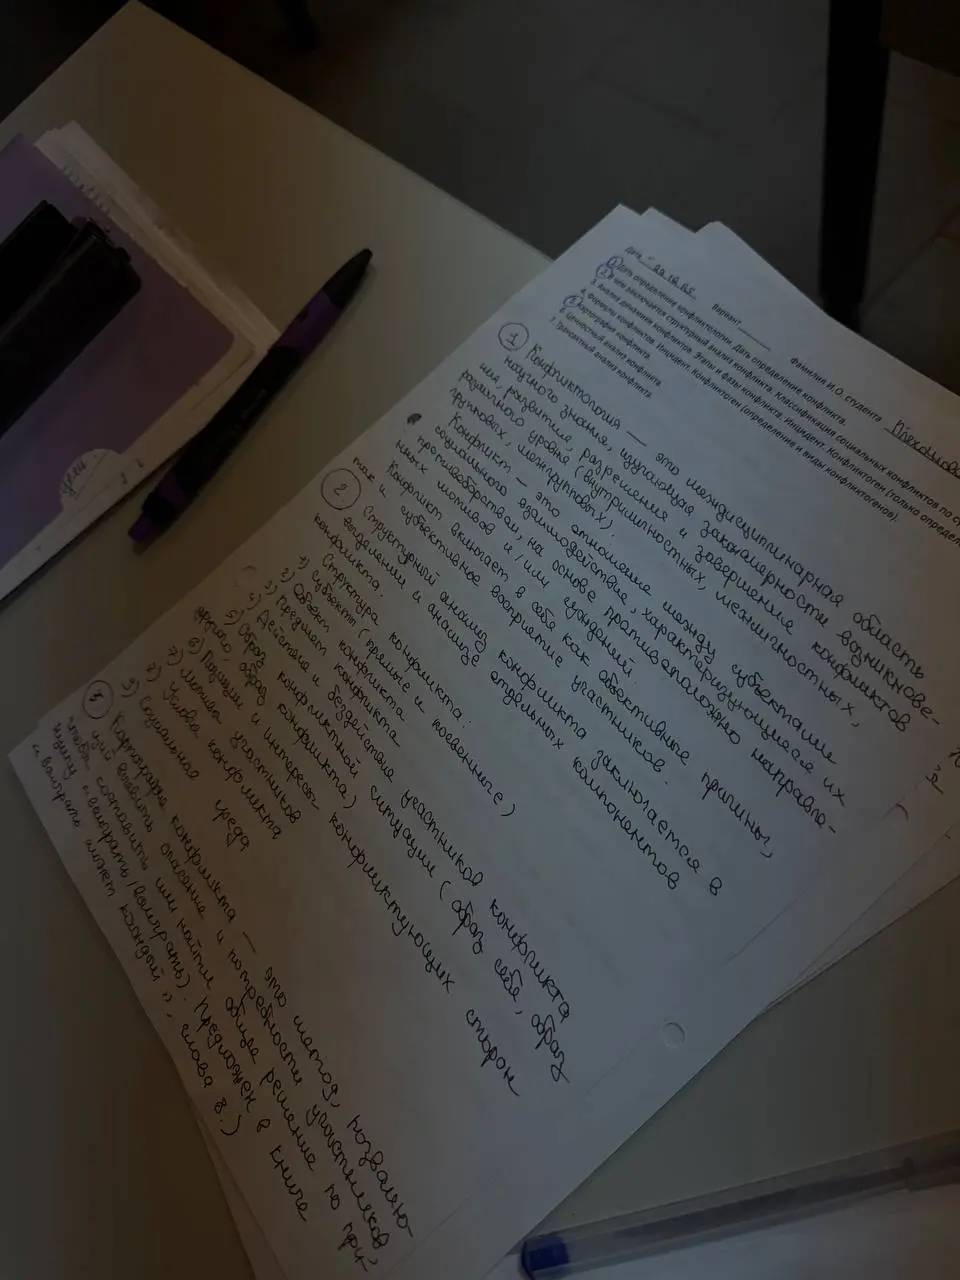 Дата 22.12.25 Вариант Фамилия И.О. студента Плехано
1. Дать определение конфликтологии. Дать определение конфликта.
2. В чем заключается структурный анализ конфликта. Классификация социальных конфликтов по
3. Анализ динамики конфликтов. Этапы и фазы конфликта. Инцидент. Конфликтоген (только
4. Формулы конфликтов. Инцидент. Конфликтоген (определение и виды конфликтогенов).
5. Картография конфликта.
6. Ценностный анализ конфликта.
7. Транзактный анализ конфликта.
1 Конфликтология — это междисциплинарная область
научного знания, изучающая закономерности возникнове-
ния, развития, разрешения и завершения конфликтов
различного уровня (внутриличностных, межличностных,
групповых, межгрупповых).
Конфликт — это отношение между субъектами
социального взаимодействия, характеризующиеся их
противоборством, на основе противоположно направле-
нных мотивов и/или суждений.
Конфликт включает в себя как объективные причины,
так и субъективное восприятие участников.
2 Структурный анализ конфликта заключается в
определении и анализе отдельных компонентов
конфликта.
Структура конфликта:
1) Субъекты (прямые и косвенные)
2) Объект конфликта
3) Предмет конфликта
4) Действия и бездействие участников конфликта
5) Образ конфликтной ситуации (образ себя, образ
другого, образ конфликта)
6) Позиции и интересы конфликтующих сторон
7) Мотивы участников
8) Условия конфликта
9) Социальная среда
5 Картография конфликта — это метод, позволяю-
щий выявить опасение и потребности участников
чтобы составить или найти общее решение по при-
нципу «выиграть/выиграть». Предложен в книге
«Выиграть может каждый»,